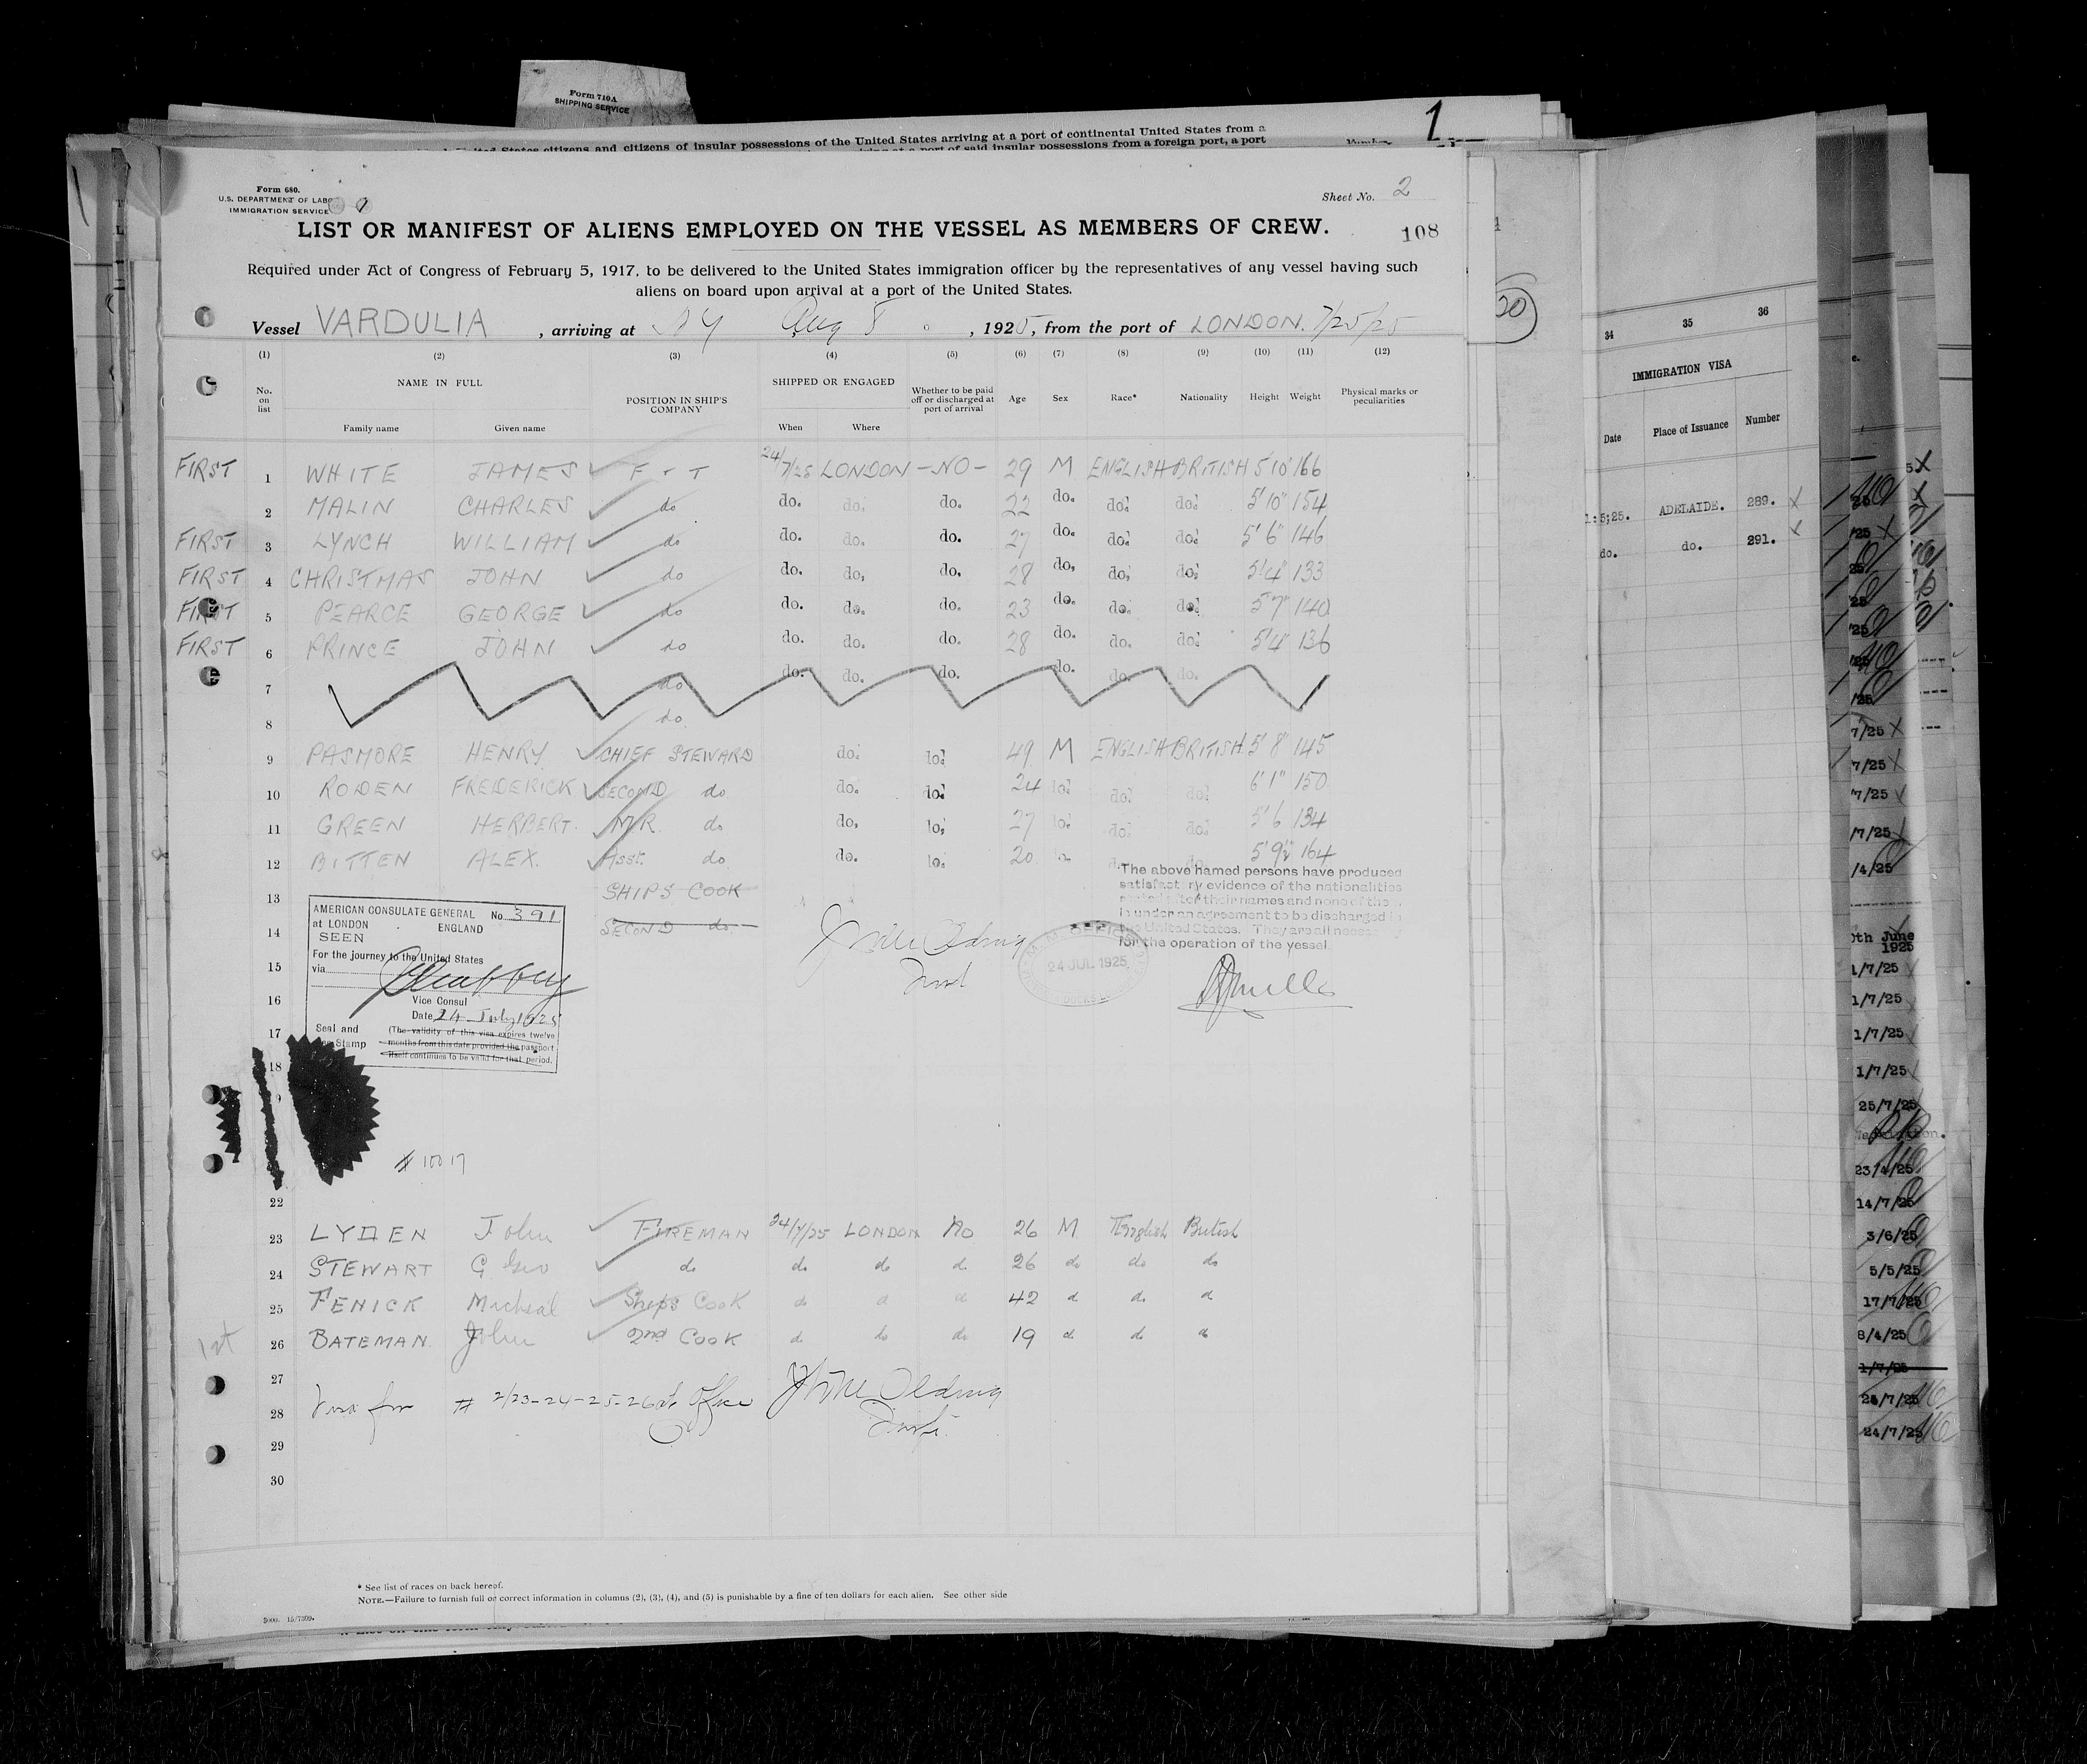 Form 710A
SHIPPING SERVICE
1
United States citizens and citizens of insular possessions of the United States arriving at a port of continental United States from a
port of said insular possessions from a foreign port, a port
Form 680.
U.S. DEPARTMENT OF LABO
IMMIGRATION SERVICE
Sheet No. 2
LIST OR MANIFEST OF ALIENS EMPLOYED ON THE VESSEL AS MEMBERS OF CREW.
108
Required under Act of Congress of February 5, 1917, to be delivered to the United States immigration officer by the representatives of any vessel having such
aliens on board upon arrival at a port of the United States.
Vessel VARDULIA, arriving at NY Aug 8, 1925, from the port of LONDON. 7/25/25
(1) (2) (3) (4) (5) (6) (7) (8) (9) (10) (11) (12)
No. on list NAME IN FULL POSITION IN SHIP'S COMPANY SHIPPED OR ENGAGED Whether to be paid off or discharged at port of arrival Age Sex Race* Nationality Height Weight Physical marks or peculiarities
Family name Given name When Where
FIRST 1 WHITE JAMES F & T 24/7/25 LONDON -NO- 29 M ENGLISH BRITISH 5'10" 166
2 MALIN CHARLES do do. do. do. 22 do. do. do. 5'10" 154
FIRST 3 LYNCH WILLIAM do do. do. do. 27 do. do. do. 5'6" 146
FIRST 4 CHRISTMAS JOHN do do. do. do. 28 do. do. do. 5'4" 133
FIRST 5 PEARCE GEORGE do do. do. do. 23 do. do. do. 5'7" 140
FIRST 6 PRINCE JOHN do do. do. do. 28 do. do. do. 5'4" 136
7 do do. do. do. do. do. do.
8 do.
9 PASMORE HENRY. CHIEF STEWARD do. do. 49 M ENGLISH BRITISH 5'8" 145
10 RODEN FREDERICK SECOND do do. do. 24 do. do. do. 6'1" 150
11 GREEN HERBERT. M.R. do do. do. 27 do. do. do. 5'6 134
12 BITTEN ALEX. Asst. do. do. do. 20 5'9½" 164
13 SHIPS COOK
14 SECOND do.
15
16
17
18
The above named persons have produced
satisfactory evidence of the nationalities
after their names and none of them
is under an agreement to be discharged in
the United States. They are all necessary
for the operation of the vessel.
M. M. OFFICE
24 JUL 1925
DOCKS
AMERICAN CONSULATE GENERAL No. 391
at LONDON ENGLAND
SEEN
For the journey to the United States
via
Vice Consul
Date 24 July 1925
Seal and
Stamp
(The validity of this visa expires twelve
months from this date provided the passport
itself continues to be valid for that period.
# 10017
22
23 LYDEN John FIREMAN 24/7/25 LONDON No 26 M English British
24 STEWART G Geo do do do do 26 do do do
25 FENICK Micheal Ships Cook do d d 42 d d. d
1st 26 BATEMAN. John 2nd Cook d do do 19 d do do
27
28 Visa for # 2/23-24-25-26 Office
29
30
* See list of races on back hereof.
NOTE.—Failure to furnish full or correct information in columns (2), (3), (4), and (5) is punishable by a fine of ten dollars for each alien. See other side
34 35 36
IMMIGRATION VISA
Date Place of Issuance Number
1:5;25. ADELAIDE. 289. X
do. do. 291. X
7/25
/7/25
/7/25
/7/25
/4/25
0th June
1925
1/7/25
1/7/25
1/7/25
1/7/25
25/7/25
23/4/25
14/7/25
3/6/25
5/5/25
17/7/25
8/4/25
1/7/25
25/7/25
24/7/25